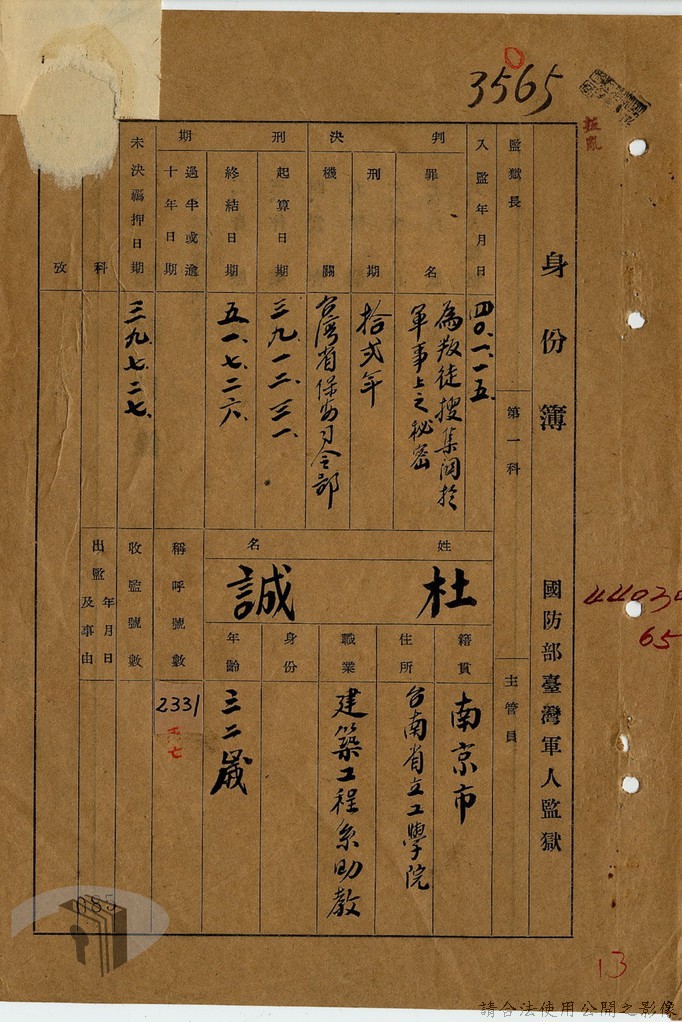 3565
拓風
身份簿
國防部臺灣軍人監獄
44030
65
監獄長
第一科
主管員
入監年月日
四〇.一.一五.
判決
罪名
為叛徒搜集関於
軍事上之秘密
刑期
拾弍年
機關
台湾省保安司令部
刑期
起算日期
三九.一二.三一.
終結日期
五一.七.二六.
過半或逾
十年日期
未決羈押日期
三九.七.二七.
科
攷
姓名
杜誠
籍貫
南京市
住所
台南省立工學院
職業
建築工程系助教
身份
年齡
三二歲
稱呼號數
2331
收監號數
出監年月日
及事由
085
13
請合法使用公開之影像